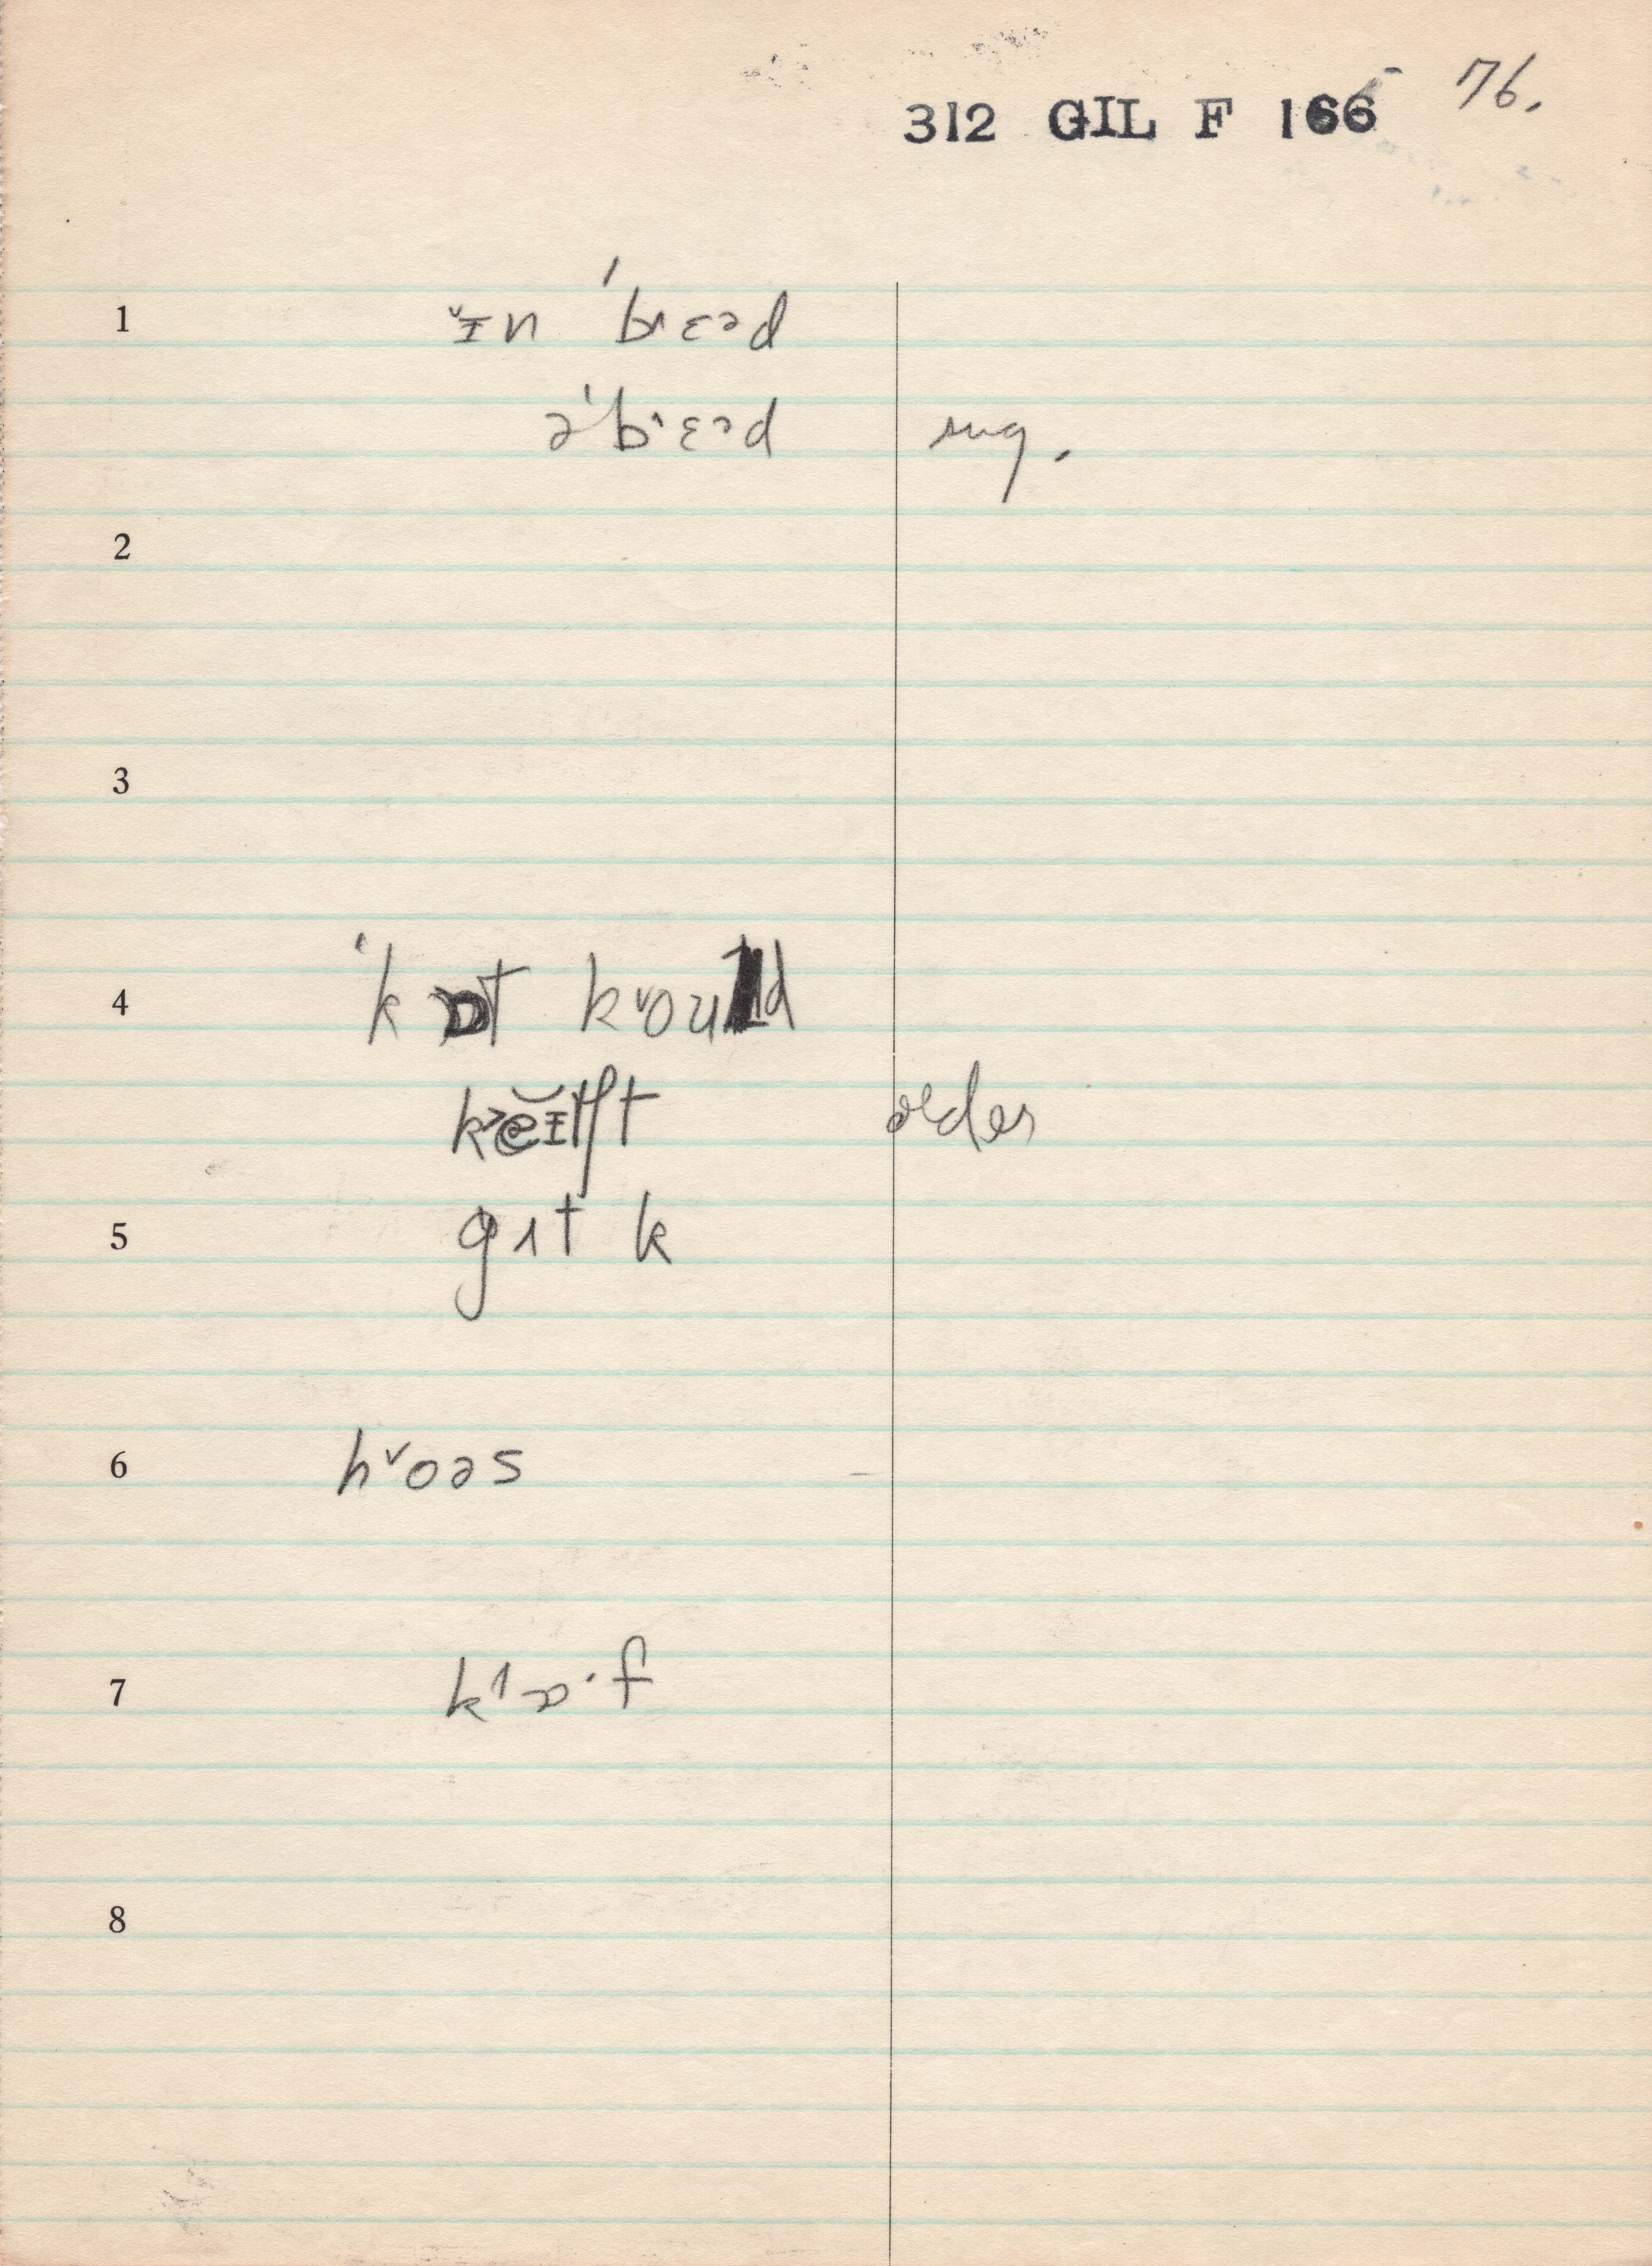 312 GIL F 166 76.
1 ɪ̌n ˈbrɛəd
əˈbrɛəd sug.
2
3
4 ˈkɒt k˅ould
older
5 gɪt k
6 h˅oəs
7 kɔ·f
8